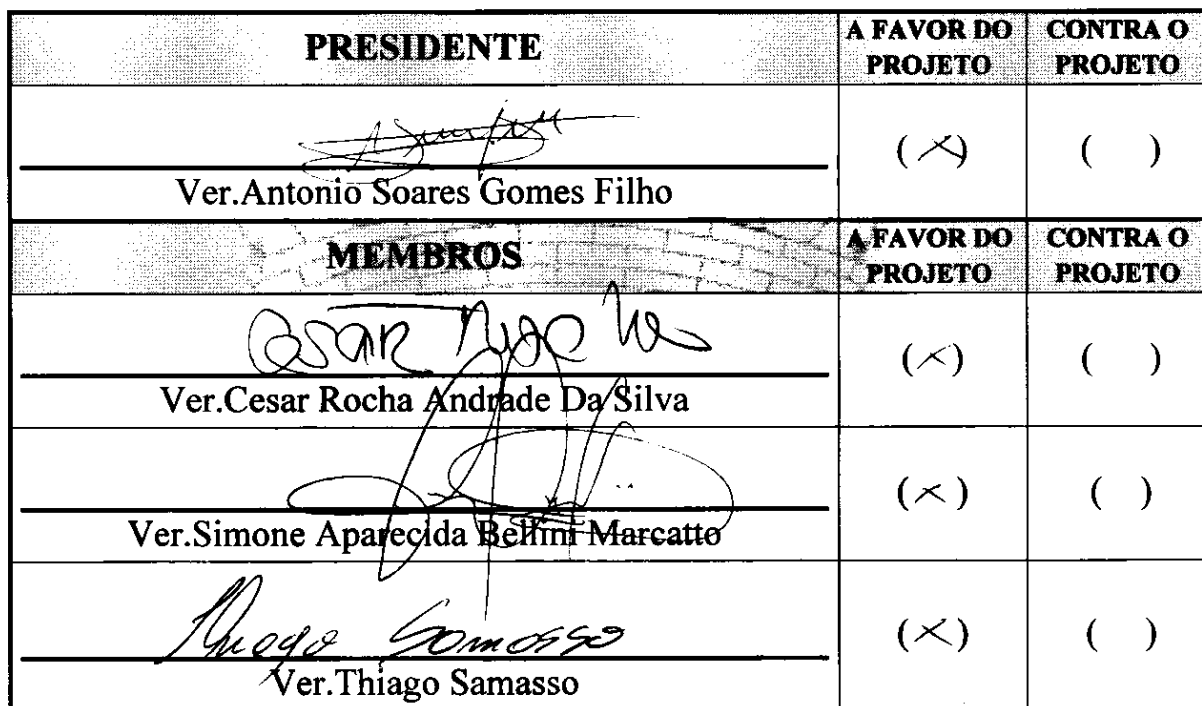 PRESIDENTE
A FAVOR DO PROJETO
CONTRA O PROJETO
(X)
( )
Ver.Antonio Soares Gomes Filho
MEMBROS
A FAVOR DO PROJETO
CONTRA O PROJETO
(X)
( )
Ver.Cesar Rocha Andrade Da Silva
(X)
( )
Ver.Simone Aparecida Bellini Marcatto
Thiago Somosso
(X)
( )
Ver.Thiago Samasso